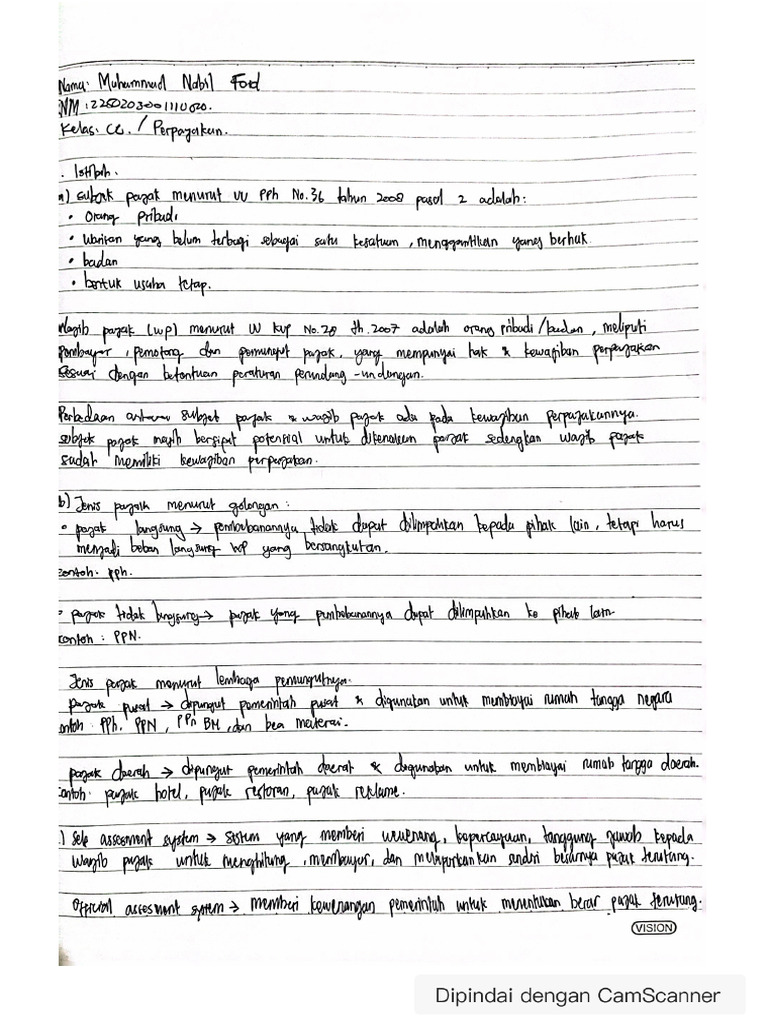 Nama: Muhammad Nabil Foed
NM : 225020300111020.
Kelas: CC. / Perpajakan.
. Istilah.
a) Subjek pajak menurut UU PPh No.36 tahun 2008 pasal 2 adalah:
• Orang Pribadi
• Warisan yang belum terbagi sebagai satu kesatuan, menggantikan yang berhak.
• badan
• bentuk usaha tetap.
Wajib pajak (WP) menurut UU KUP No.28 th.2007 adalah orang pribadi/badan, meliputi
pembayar, pemotong dan pemungut pajak, yang mempunyai hak & kewajiban perpajakan
sesuai dengan ketentuan peraturan perundang-undangan.
Perbedaan antara subjek pajak & wajib pajak ada pada kewajiban perpajakannya.
subjek pajak masih bersipat potensial untuk dikenakan pajak sedangkan wajib pajak
sudah memiliki kewajiban perpajakan.
b) Jenis pajak menurut golongan :
• pajak langsung → pembebanannya tidak dapat dilimpahkan kepada pihak lain, tetapi harus
menjadi beban langsung WP yang bersangkutan.
contoh: PPh.
• pajak tidak langsung → pajak yang pembebanannya dapat dilimpahkan ke pihak lain
contoh : PPN.
Jenis pajak menurut lembaga pemungutnya.
pajak pusat → dipungut pemerintah pusat & digunakan untuk membiayai rumah tangga negara
ontoh : PPh, PPN, PPn BM, dan bea materai.
pajak daerah → dipungut pemerintah daerah & digunakan untuk membiayai rumah tangga daerah.
contoh: pajak hotel, pajak restoran, pajak reklame.
.) Self assesment system → sistem yang memberi wewenang, kepercayaan, tanggung jawab kepada
wajib pajak untuk menghitung, membayar, dan melaporkankan sendiri besarnya pajak terutang.
Official assesment system → memberi kewenangan pemerintah untuk menentukan besar pajak terutang.
VISION
Dipindai dengan CamScanner